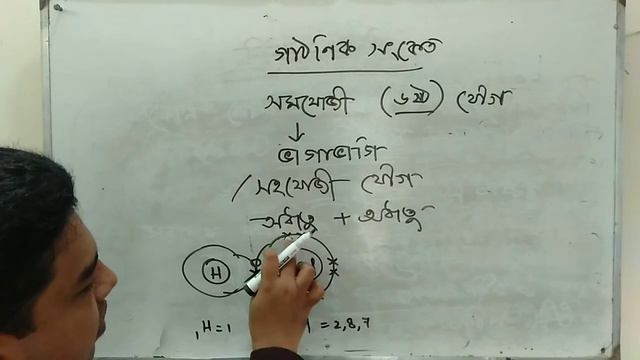 গাঠনিক সংকেত
সমযোজী (৬ষ্ঠ) যৌগ
↓
ভাগাভাগি
/ সহযোজী যৌগ
অধাতু + অধাতু
H
₁H = 1 = 2,8,7